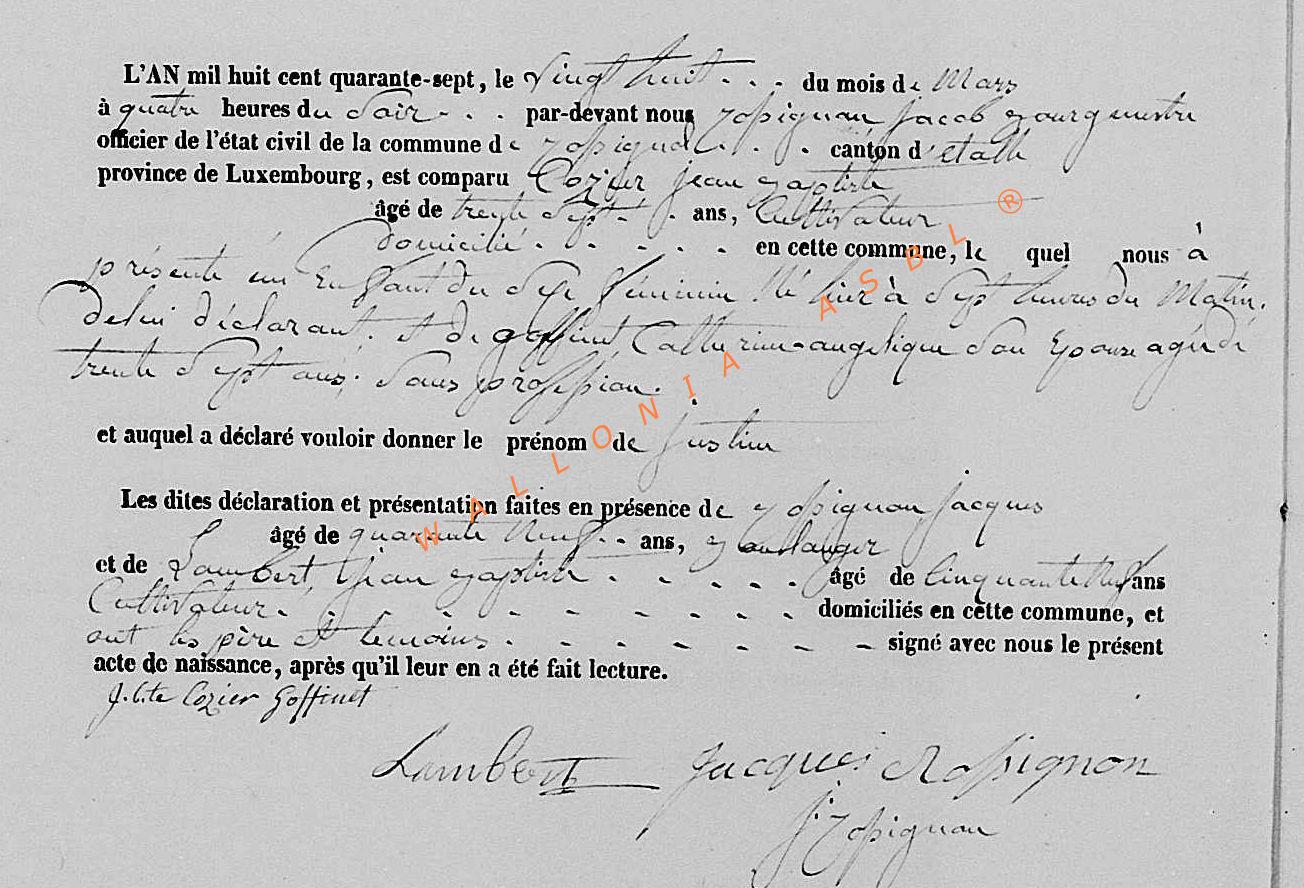 L'AN mil huit cent quarante-sept, le Vingt huit . . . du mois de Mars
à quatre heures du Soir . . . par-devant nous Rossignon Jacob Bourguestre
officier de l'état civil de la commune de . . . canton d'étalle
province de Luxembourg, est comparu Cozier jean Baptiste
âgé de trente Sept . . . ans, Cultivateur
domicilié . . . . . en cette commune, le quel nous à
présenté un Enfant du Sexe féminin Né hier à Sept heures du Matin,
delui déclarant, et de goffinet Catherine angelique Son Epouse agée de
trente Sept ans, Sans profession.
et auquel a déclaré vouloir donner le prénom de justine
Les dites déclaration et présentation faites en présence de Rossignon Jacques
âgé de quarante Neuf . . ans, Boulanger
et de Lambert, Jean Baptiste . . . . . âgé de Cinquante Neuf ans
Cultivateur . - - - - - - - - domiciliés en cette commune, et
ont les père et temoins . - - - - - signé avec nous le présent
acte de naissance, après qu'il leur en a été fait lecture.
J. bte Cozier Goffinet
Lambert Jacques Rossignon
J Rossignon
WALLONIA ASBL ®